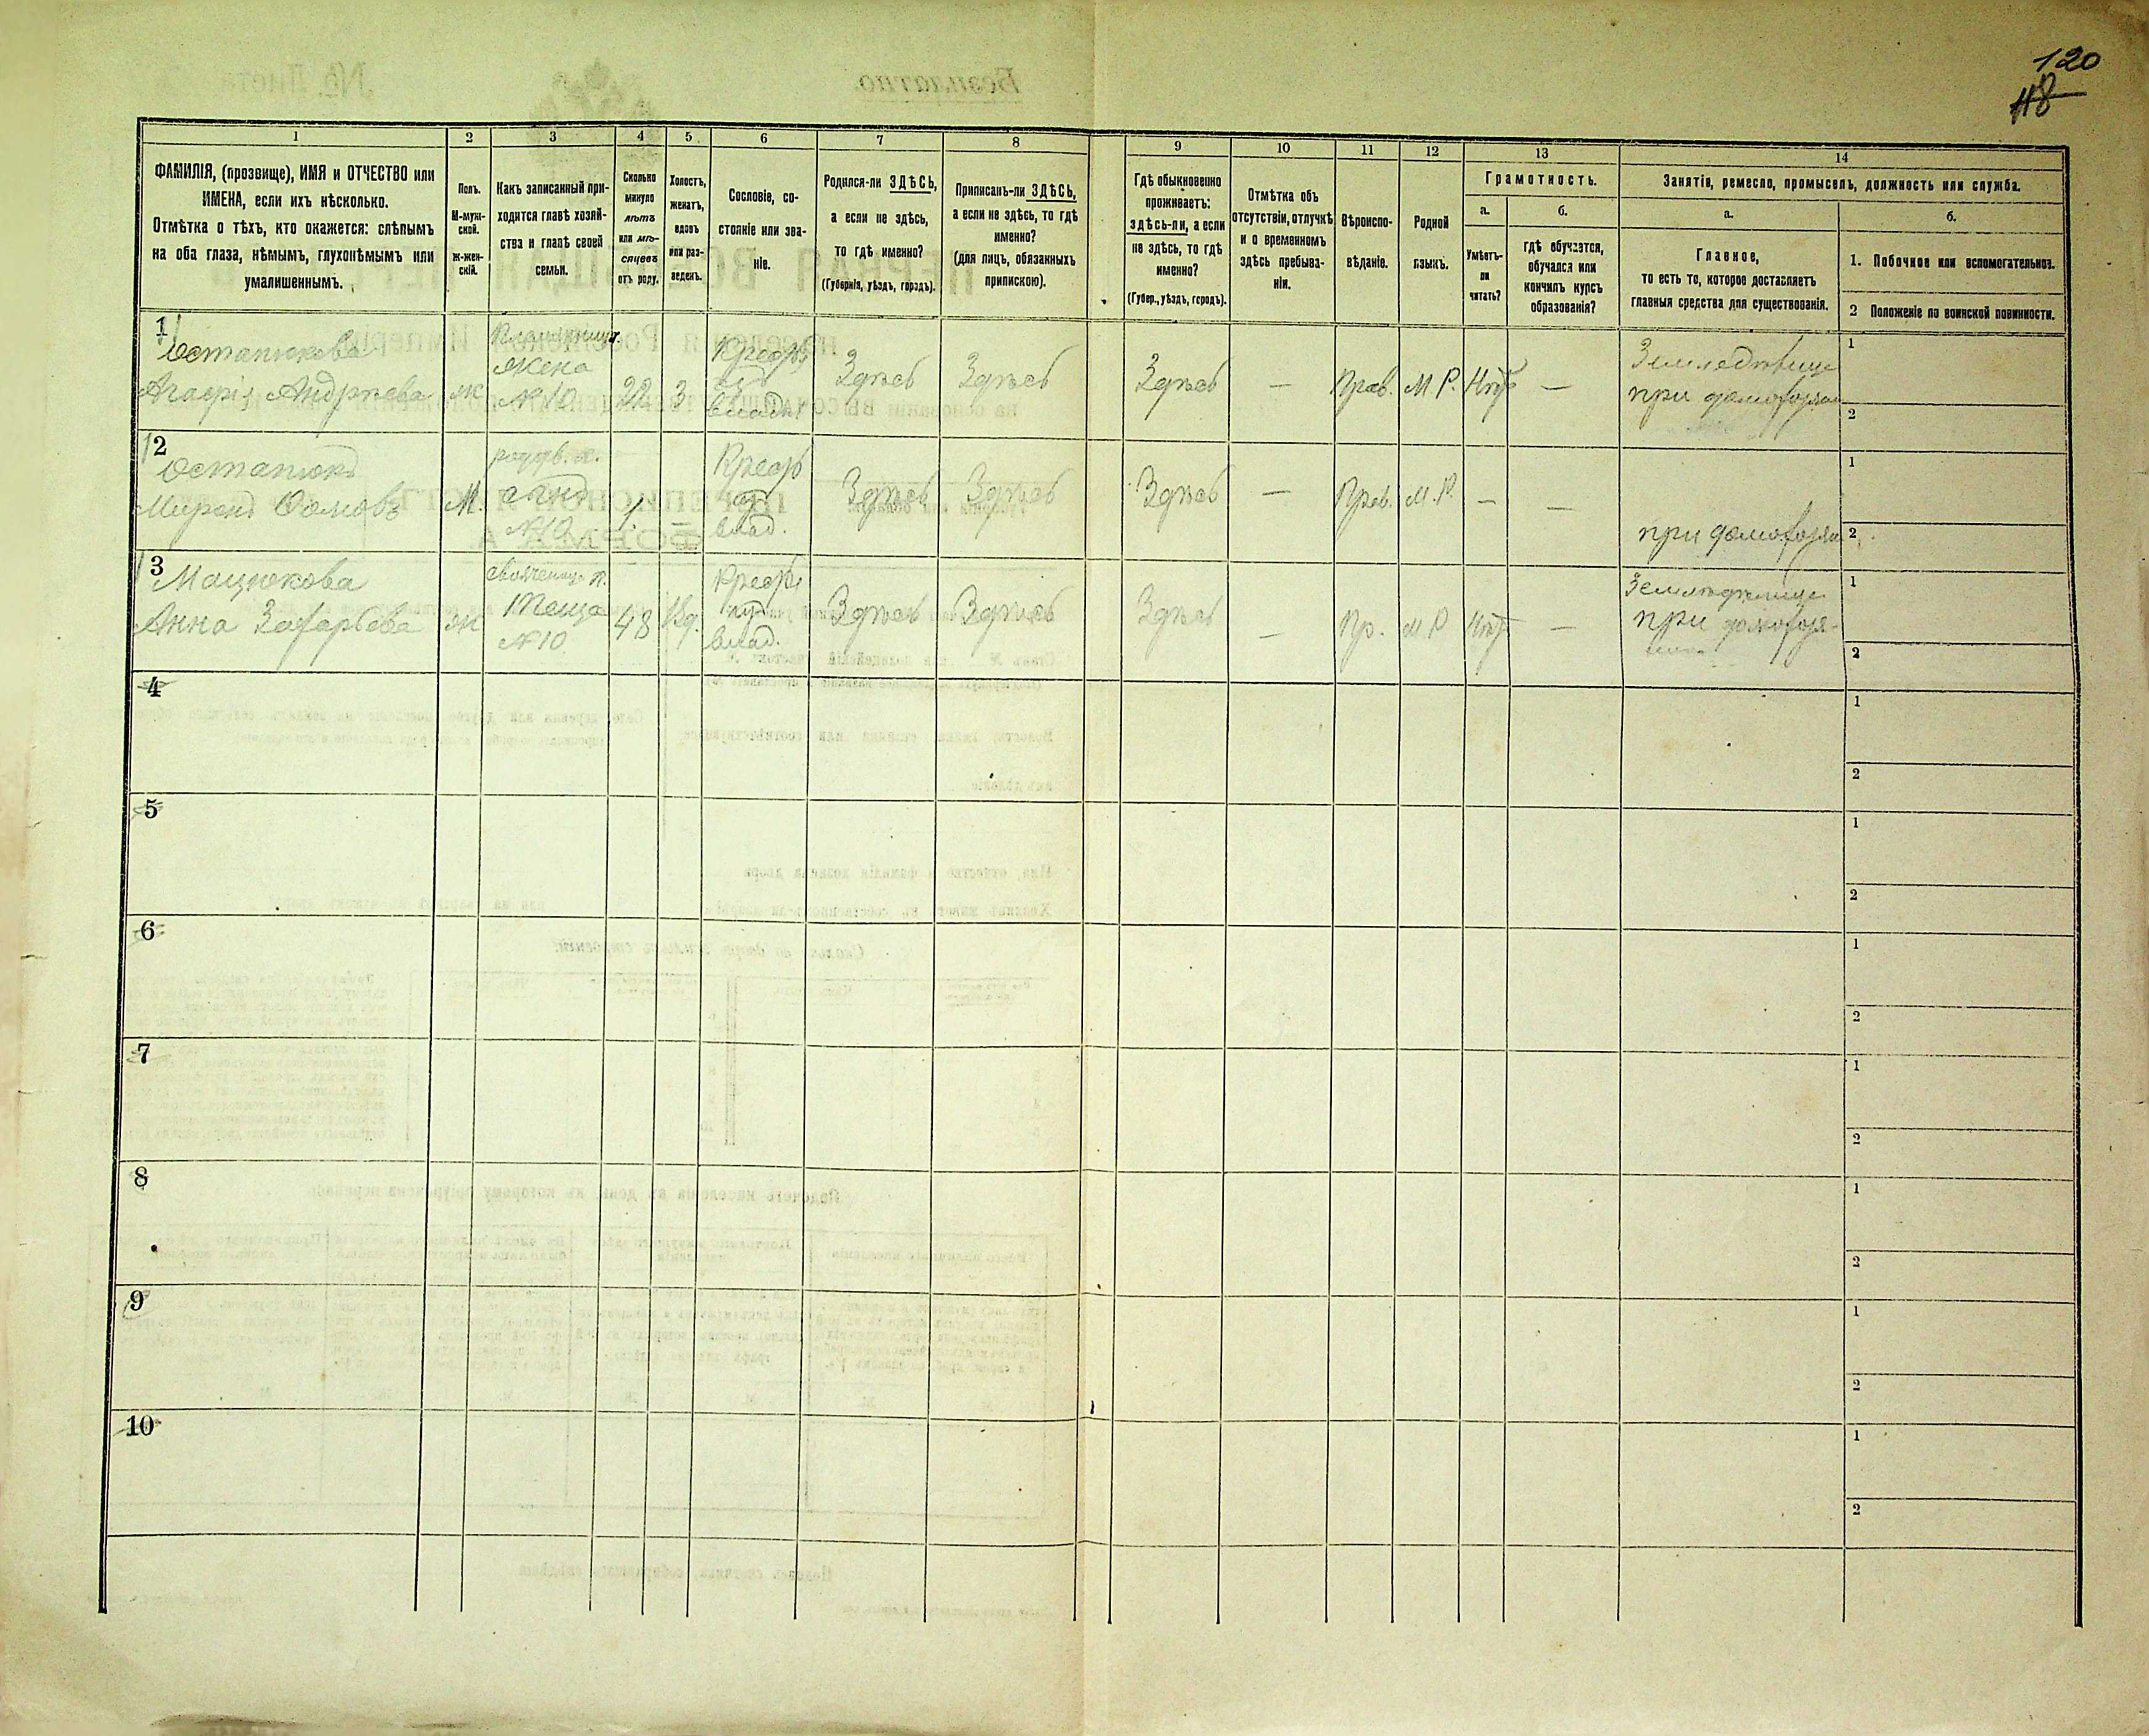 120
118
1
2
3
4
5
6
7
8
9
10
11
12
13
14
ФАМИЛІЯ, (прозвище), ИМЯ и ОТЧЕСТВО или
ИМЕНА, если ихъ нѣсколько.
Отмѣтка о тѣхъ, кто окажется: слѣпымъ
на оба глаза, нѣмымъ, глухонѣмымъ или
умалишеннымъ.
Полъ.
М-муж-
ской.
Ж-жен-
скій.
Какъ записанный при-
ходится главѣ хозяй-
ства и главѣ своей
семьи.
Сколько
минуло
лѣтъ
или мѣ-
сяцевъ
отъ роду.
Холостъ,
женатъ,
вдовъ
или раз-
веденъ.
Сословіе, со-
стояніе или зва-
ніе.
Родился-ли ЗДѢСЬ,
а если не здѣсь,
то гдѣ именно?
(Губернія, уѣздъ, городъ).
Приписанъ-ли ЗДѢСЬ,
а если не здѣсь, то гдѣ
именно?
(для лицъ, обязанныхъ
припискою).
Гдѣ обыкновенно
проживаетъ:
здѣсь-ли, а если
не здѣсь, то гдѣ
именно?
(Губер., уѣздъ, городъ).
Отмѣтка объ
отсутствіи, отлучкѣ
и о временномъ
здѣсь пребыва-
ніи.
Вѣроиспо-
вѣданіе.
Родной
языкъ.
Грамотность.
а.
Умѣетъ-
ли
читать?
б.
гдѣ обучается,
обучался или
кончилъ курсъ
образованія?
Занятія, ремесло, промыселъ, должность или служба.
а.
Главное,
то есть то, которое доставляетъ
главныя средства для существованія.
б.
1. Побочное или вспомогательное.
2 Положеніе по воинской повинности.
1
Остапюкова
Агафія Андрѣева
ж
жена
№ 10
22
З
Крест
из
владѣ
Здѣсь
Здѣсь
Здѣсь
—
Прав.
М Р.
Нѣтъ
—
при домохозя
1
2
2
Остапюкъ
Миронъ Ѳомовъ
М.
сынъ
№ 10
1
—
Крест
из
влад.
Здѣсь
Здѣсь
Здѣсь
—
Прав.
М. Р.
—
—
при домохозя
1
2
3
Мацюкова
Анна Захарьева
ж
теща
№ 10
48
Вд.
Крест
из
влад.
Здѣсь
Здѣсь
Здѣсь
—
Пр.
М Р
Нѣтъ
—
при домохозя-
1
2
4
1
2
5
1
2
6
1
2
7
1
2
8
1
2
9
1
2
10
1
2